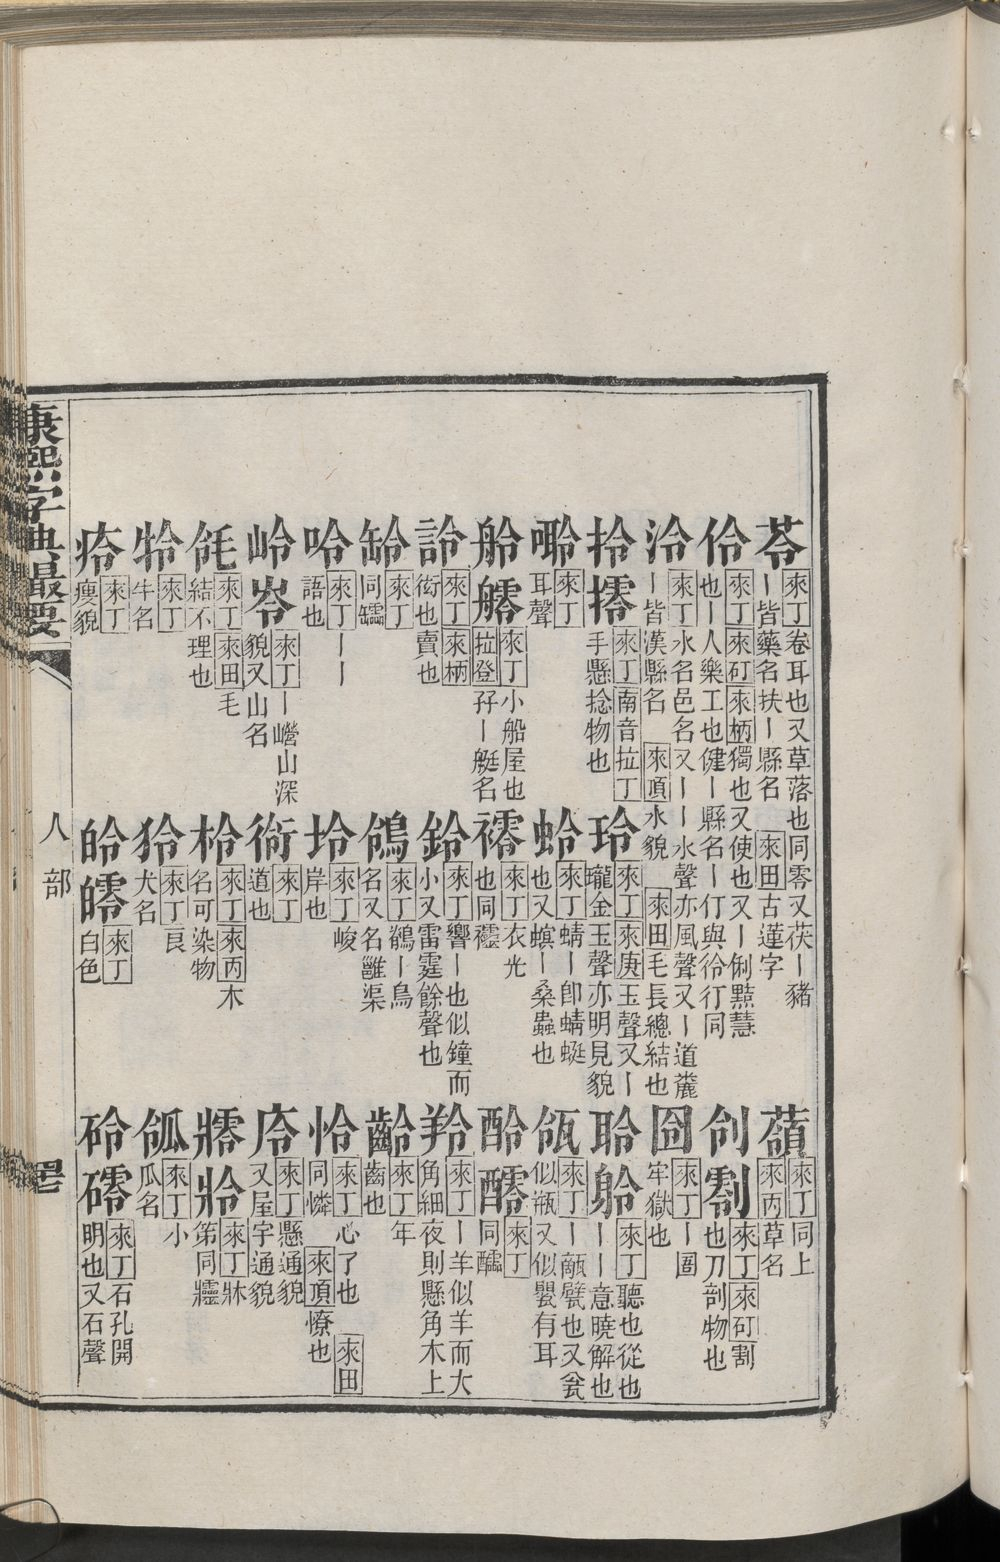 苓來丁卷耳也又草落也同零又茯丨豬
丨皆藥名扶丨縣名 來田古蓮字
來丁同上
來丙草名
伶來丁來矴來柄獨也又使也又丨俐黠慧
也丨人樂工也健丨縣名丨仃與彾行同
刢來丁來矴割
也刀剖物也
泠來丁水名邑名又丨丨水聲亦風聲又丨道
丨皆漢縣名 來項水貌 來田毛長總結也
囹來丁丨圄
牢獄也
拎來丁南音拉丁
手懸捻物也
玲來丁來庚玉聲又丨
瓏金玉聲亦明見貌
聆來丁聽也從也
丨丨意曉解也
㖫來丁
耳聲
蛉來丁蜻丨卽蜻蜓
也又螟丨桑蟲也
瓴來丁丨甓也又瓮
似瓶又似甖有耳
舲來丁小船屋也
拉登孖丨艇名
來丁衣光
也同
來丁
同醽
詅來丁來柄
衒也賣也
鈴來丁響丨也似鐘而
小又雷霆餘聲也
羚來丁丨羊似羊而大
角細夜則懸角木上
來丁
同
鴒來丁鶺丨鳥
名又名雝渠
齡來丁年
齒也
呤來丁丨丨
語也
坽來丁峻
岸也
怜來丁心了也 來田
同憐 來項憭也
岭岺來丁丨巆山深
貌又山名
衑來丁
道也
來丁懸通貌
又屋宇通貌
來丁來田毛
結不理也
柃來丁來丙木
名可染物
來丁牀
笫同
來丁
牛名
狑來丁良
犬名
來丁小
瓜名
來丁
瘦貌
皊來丁
白色
砱來丁石孔開
明也又石聲
康熙字典撮要
人部